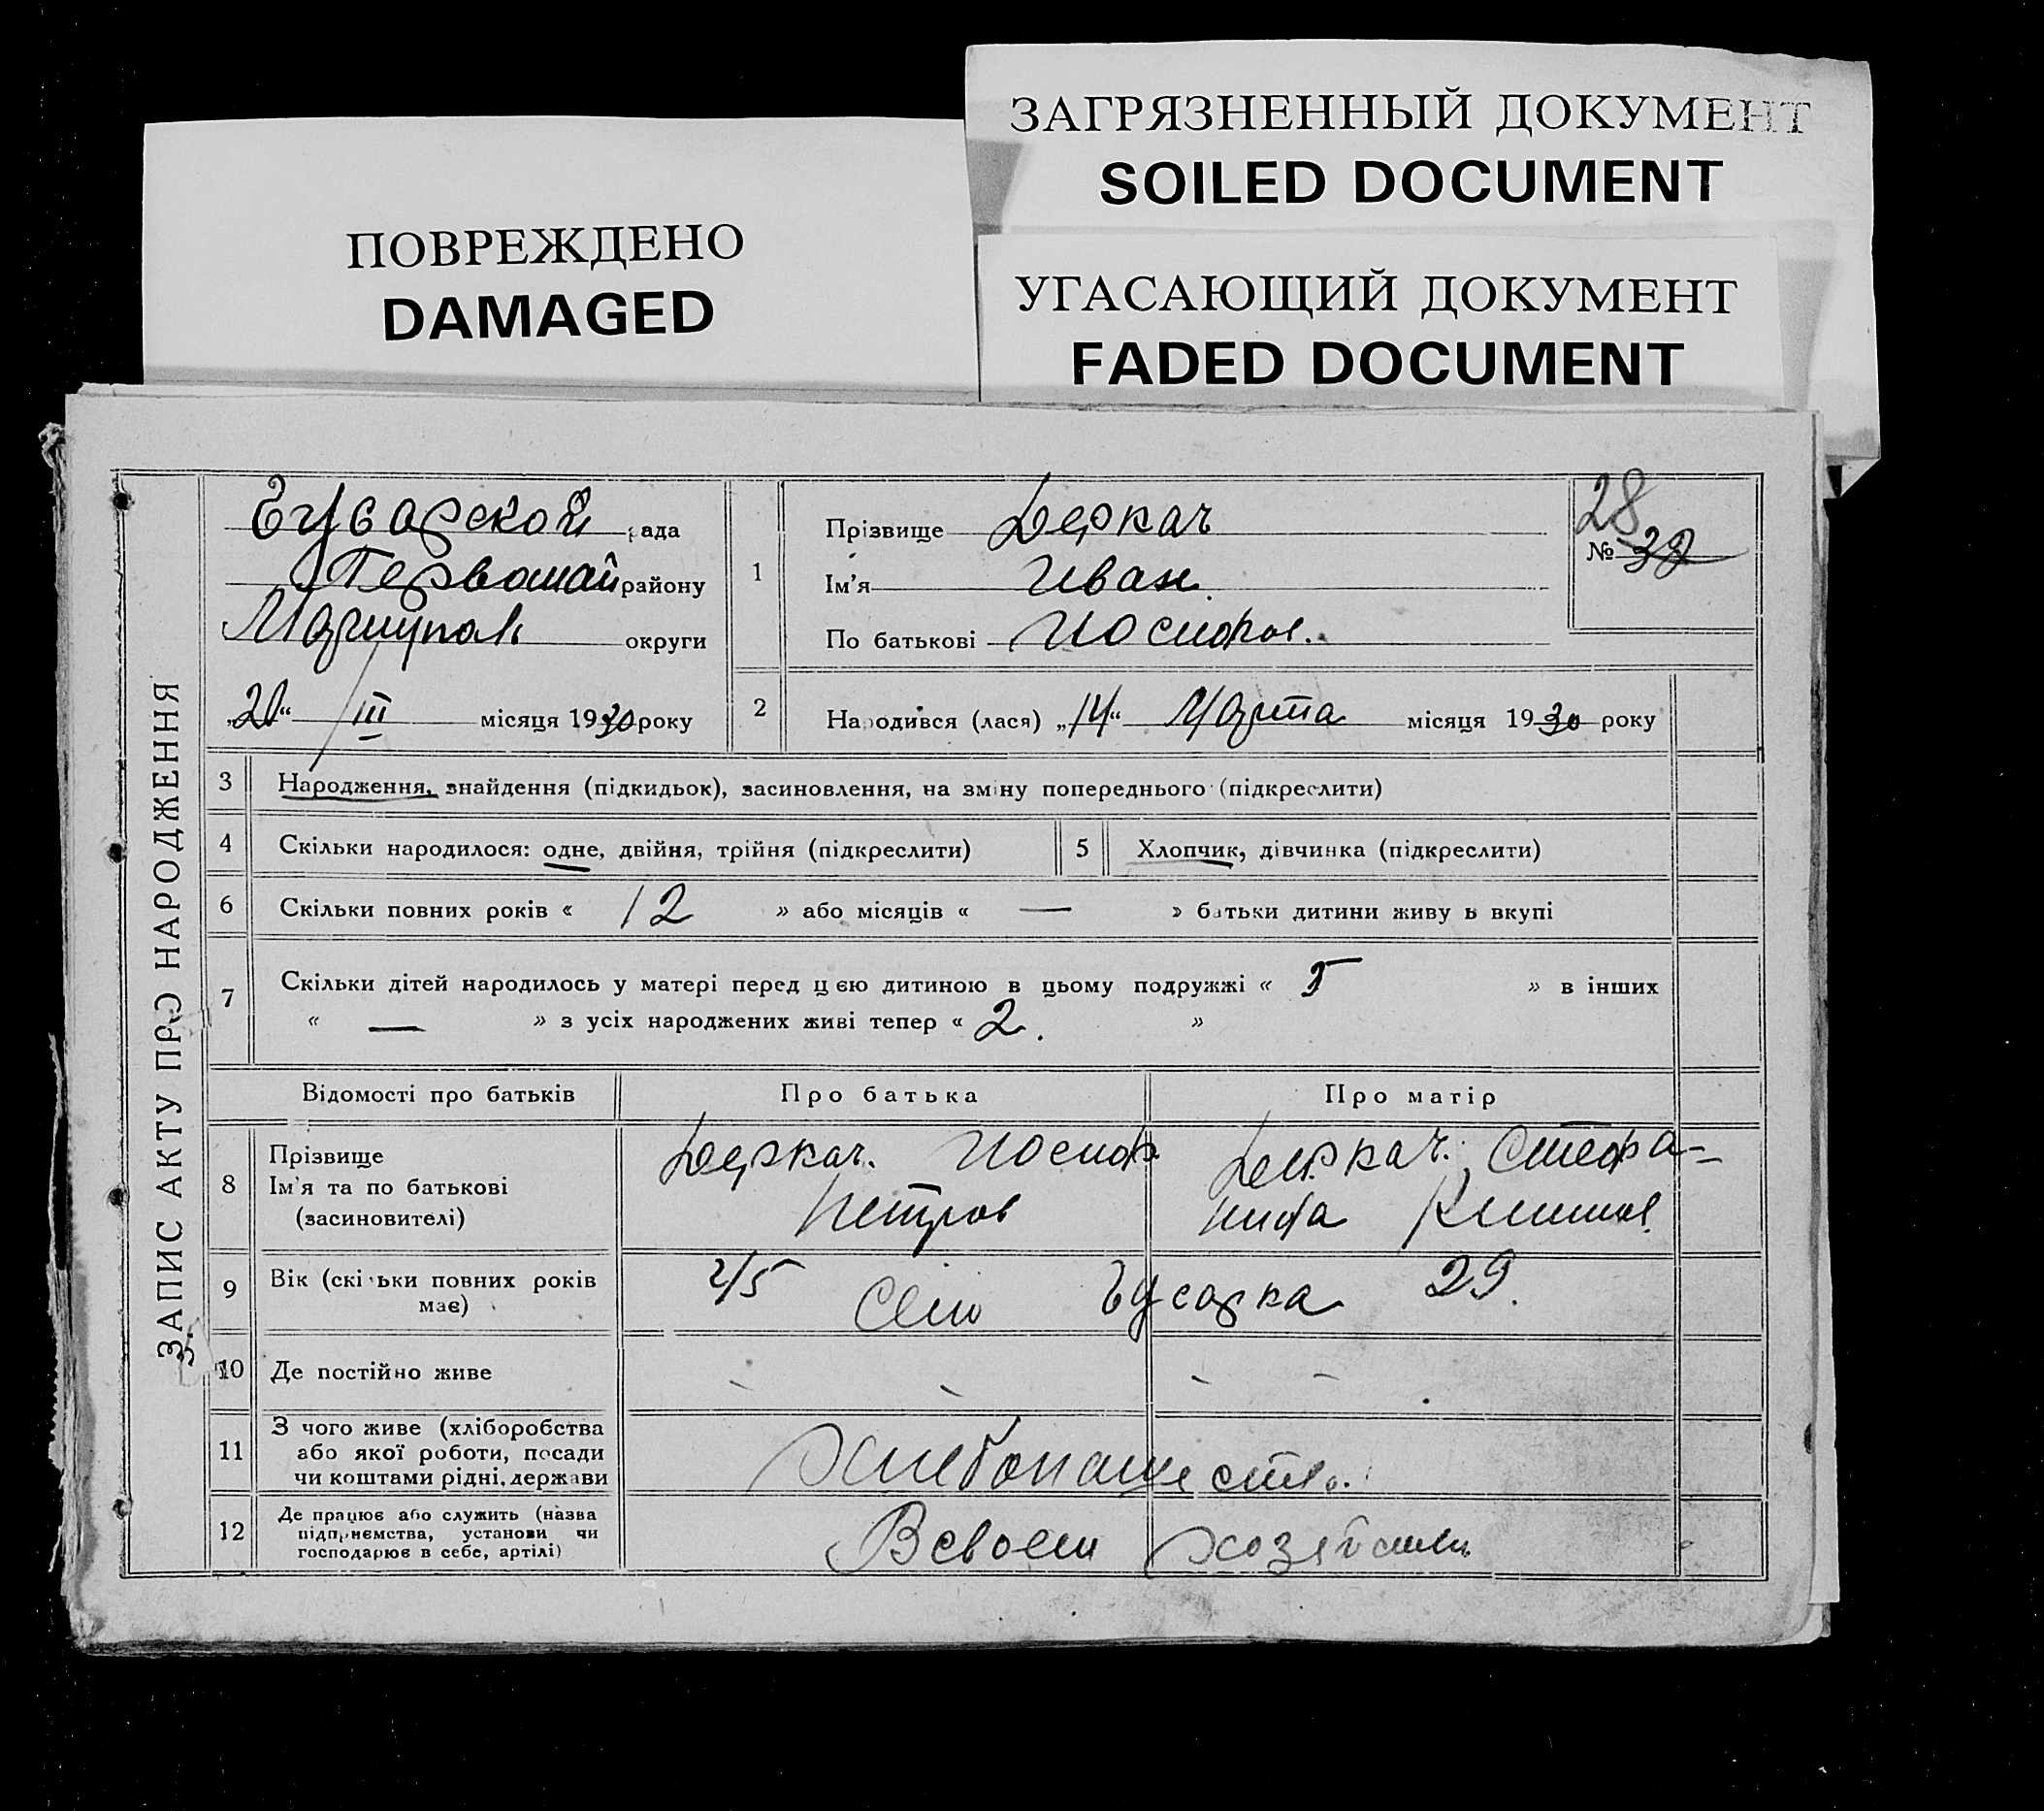 ЗАГРЯЗНЕННЫЙ ДОКУМЕНТ
SOILED DOCUMENT
ПОВРЕЖДЕНО
DAMAGED
УГАСАЮЩИЙ ДОКУМЕНТ
FADED DOCUMENT
ЗАПИС АКТУ ПРО НАРОДЖЕННЯ
Гусарской рада
Первомай району
Мариупол округи
„20“ III місяця 1930 року
28
№ 38
1
Прізвище Деркач
Ім'я Иван
По батькові Иосифов.
2 Народився (лася) „14“ Марта місяця 1930 року
3 Народження, знайдення (підкидьок), засиновлення, на зміну попереднього (підкреслити)
4 Скільки народилося: одне, двійня, трійня (підкреслити)
5 Хлопчик, дівчинка (підкреслити)
6 Скільки повних років « 12 » або місяців « — » батьки дитини живу в вкупі
7 Скільки дітей народилось у матері перед цєю дитиною в цьому подружжі « 5 » в інших
« — » з усіх народжених живі тепер « 2. »
Відомості про батьків Про батька Про матір
8 Прізвище
Ім'я та по батькові
(засиновителі)
Деркач. Иосиф
Петров
Деркач. Стефа-
нида
9 Вік (скільки повних років
має)
Село Гусарка 29.
10 Де постійно живе
11 З чого живе (хліборобства
або якої роботи, посади
чи коштами рідні, держави
Хлебопашество.
12 Де працює або служить (назва
підприємства, установи чи
господарює в себе, артілі)
В своем хозяйстве